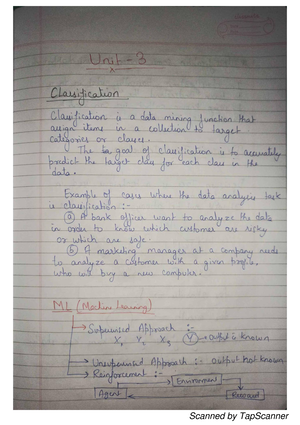 Unit - 3
Classification
Classification is a data mining function that
assign items in a collection to target
categories or classes.
The goal of classification is to accurately
predict the target class for each class in the
data.
Example of cases where the data analysis task
is classification :-
(a) A bank officer want to analyze the data
in order to know which customer are risky
or which are safe.
(b) A marketing manager at a company needs
to analyze a customer with a given profile,
who will buy a new computer.
ML (Machine Learning)
→ Supervised Approach :-
X1 X2 X3 (Y) → output is known
→ Unsupervised Approach :- output not known.
→ Reinforcement :-
Environment
Agent
Reward
Scanned by TapScanner